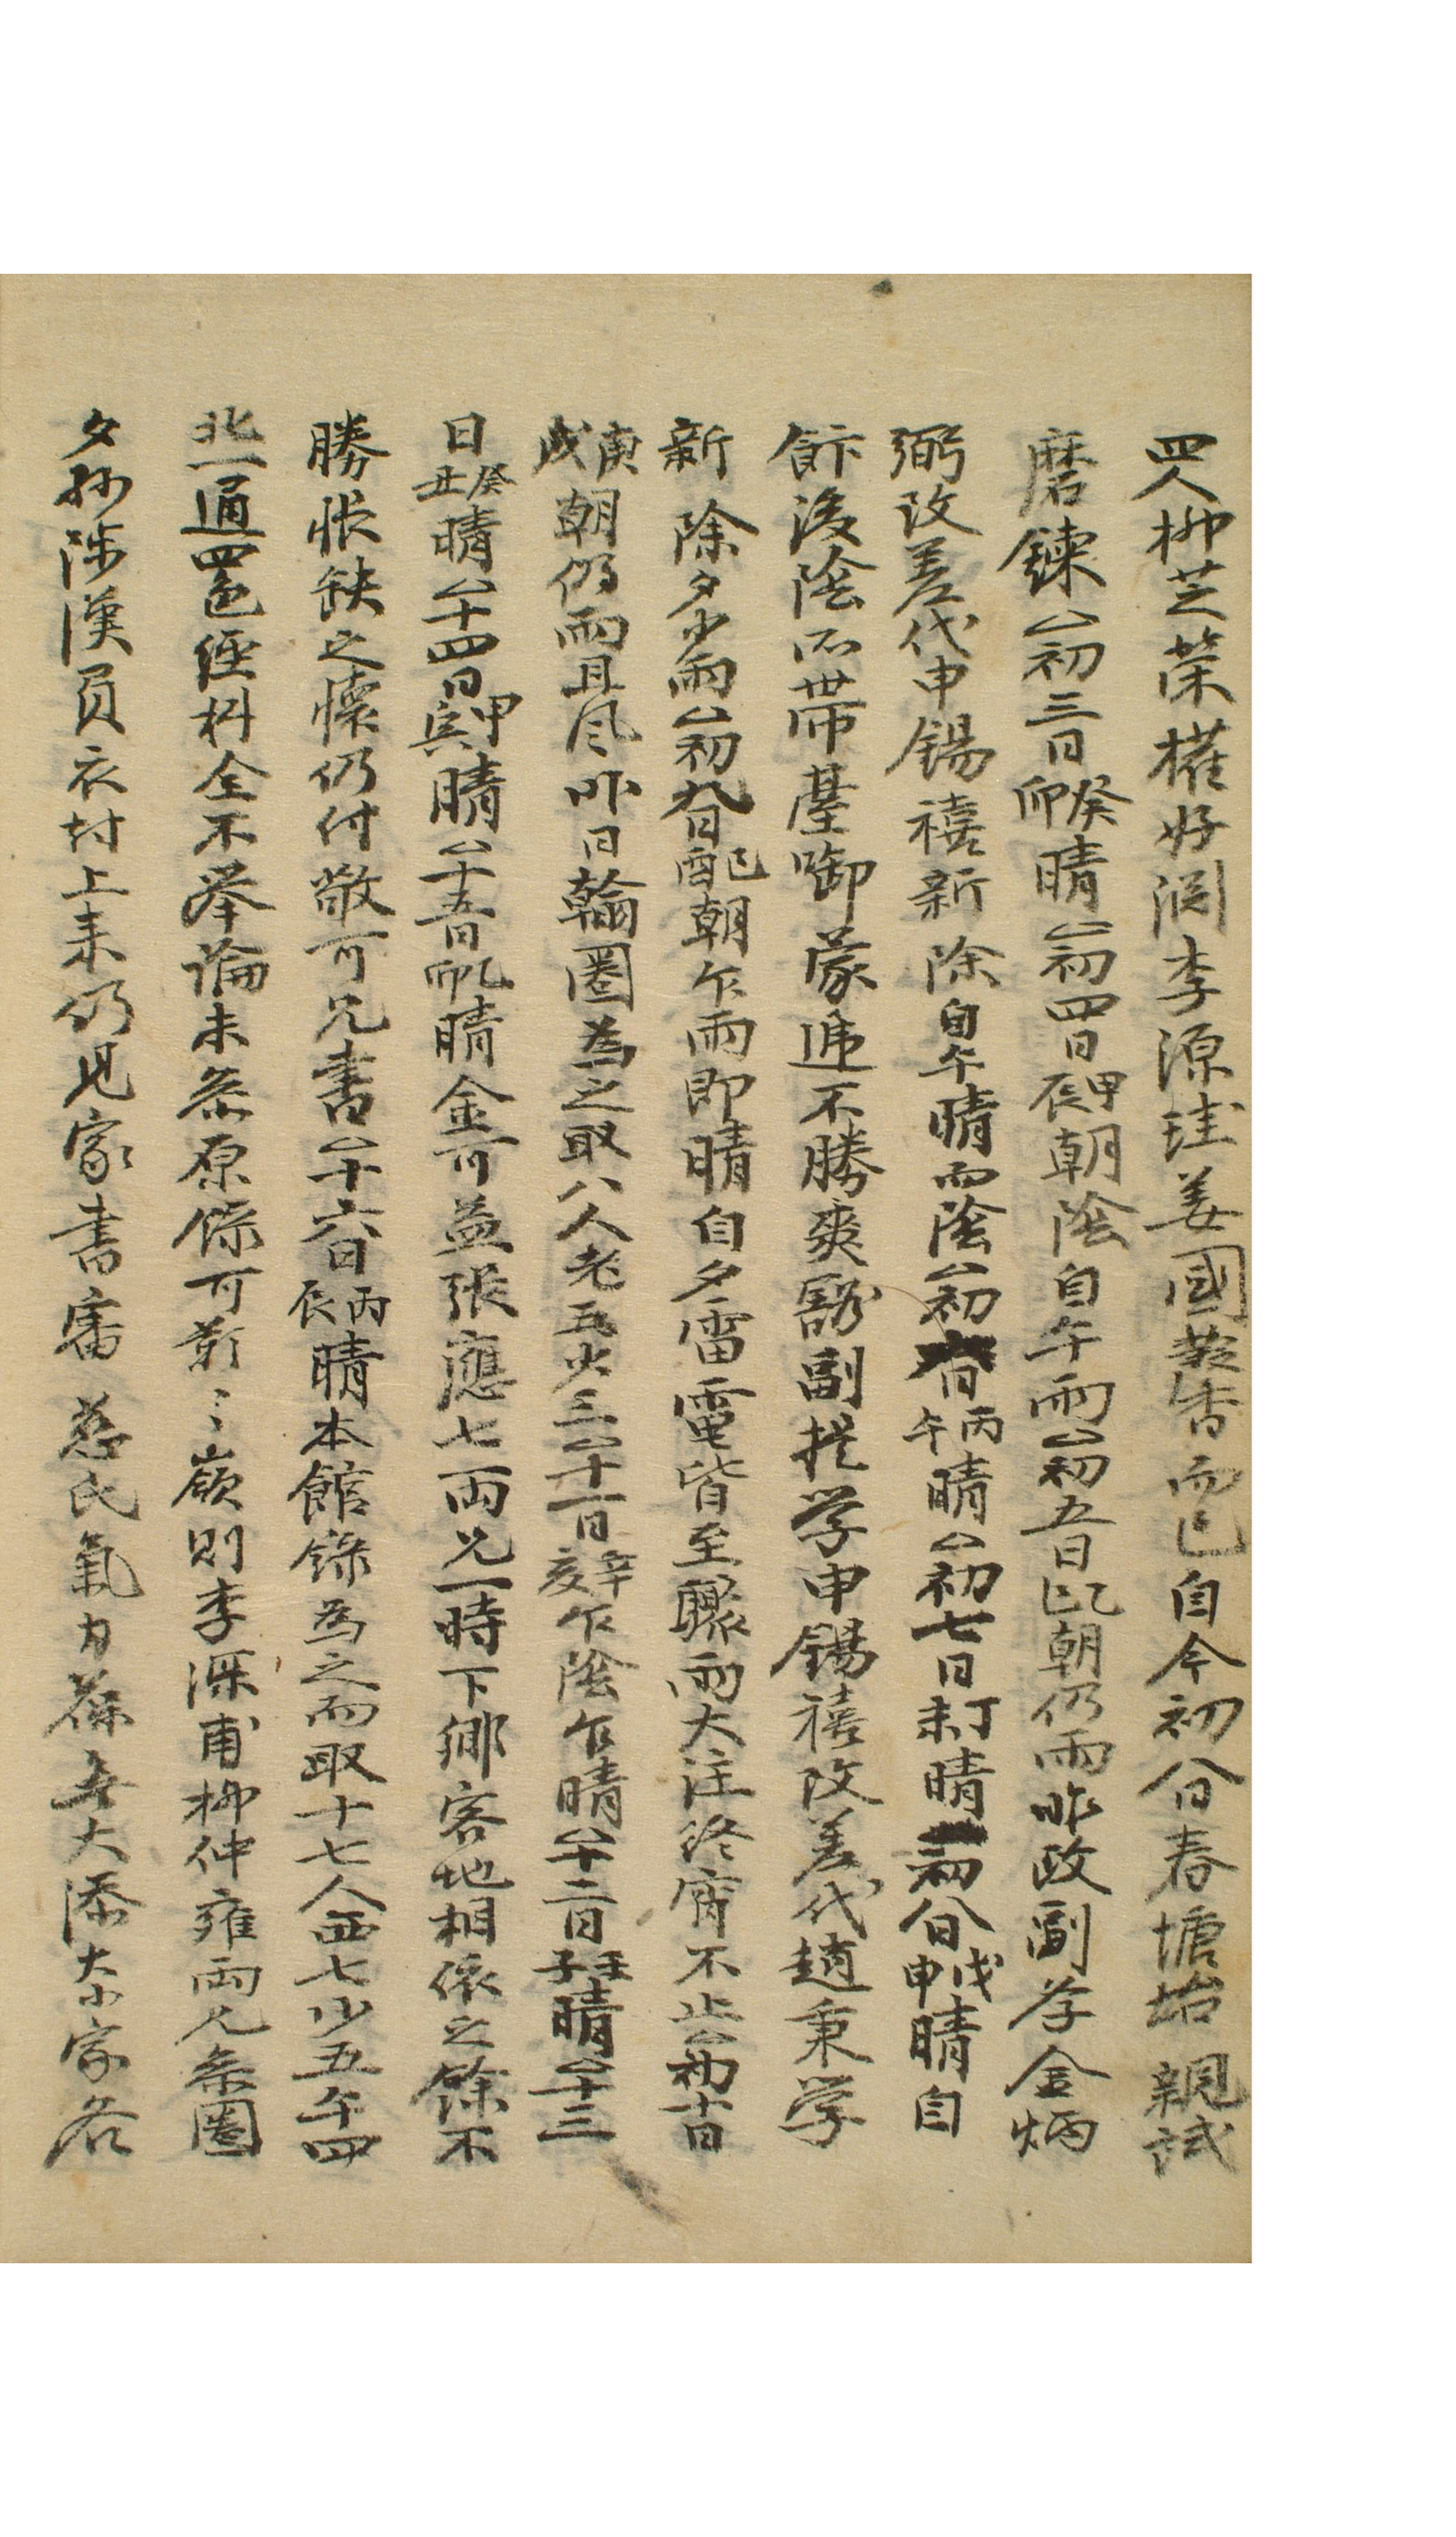 四人柳芝榮權好淵李源珪姜國 告而已自今初八日春塘坮 親試
磨鍊 亼初三日癸卯晴 亼初四日甲辰朝陰自午雨 亼初五日乙巳朝仍雨昨政副孝金炳
弼改差代申錫禧新 除自午晴而陰 亼初六日丙午晴 亼初七日丁未晴 初八日戊申晴自
飰後陰不帶臺啣蒙遞不勝爽豁副提学申錫禧改差代趙秉学
新 除夕少雨 亼初九日己酉朝乍雨卽晴自夕雷電皆至驟雨大注終宵不止 亼初十日
庚戌朝仍雨且风昨日翰圈為之取八人老五火三 亼十一日辛亥乍陰乍晴 亼十二日壬子晴 亼十三
日癸丑晴 亼十四日甲寅晴 亼十五日乙卯晴金可益張應七兩兄一時下鄉客地相依之餘不
勝悵缺之懷仍付敬可兄書 亼十六日丙辰晴本館錄為之而取十七人西七少五午四
北一通四色經科全不举論未叅原條可歎〻嶺則李深甫柳仲雍兩兄叅圈
夕 陟漢員衣村上来仍見家書審 慈氏氣力葆安大添大小家各